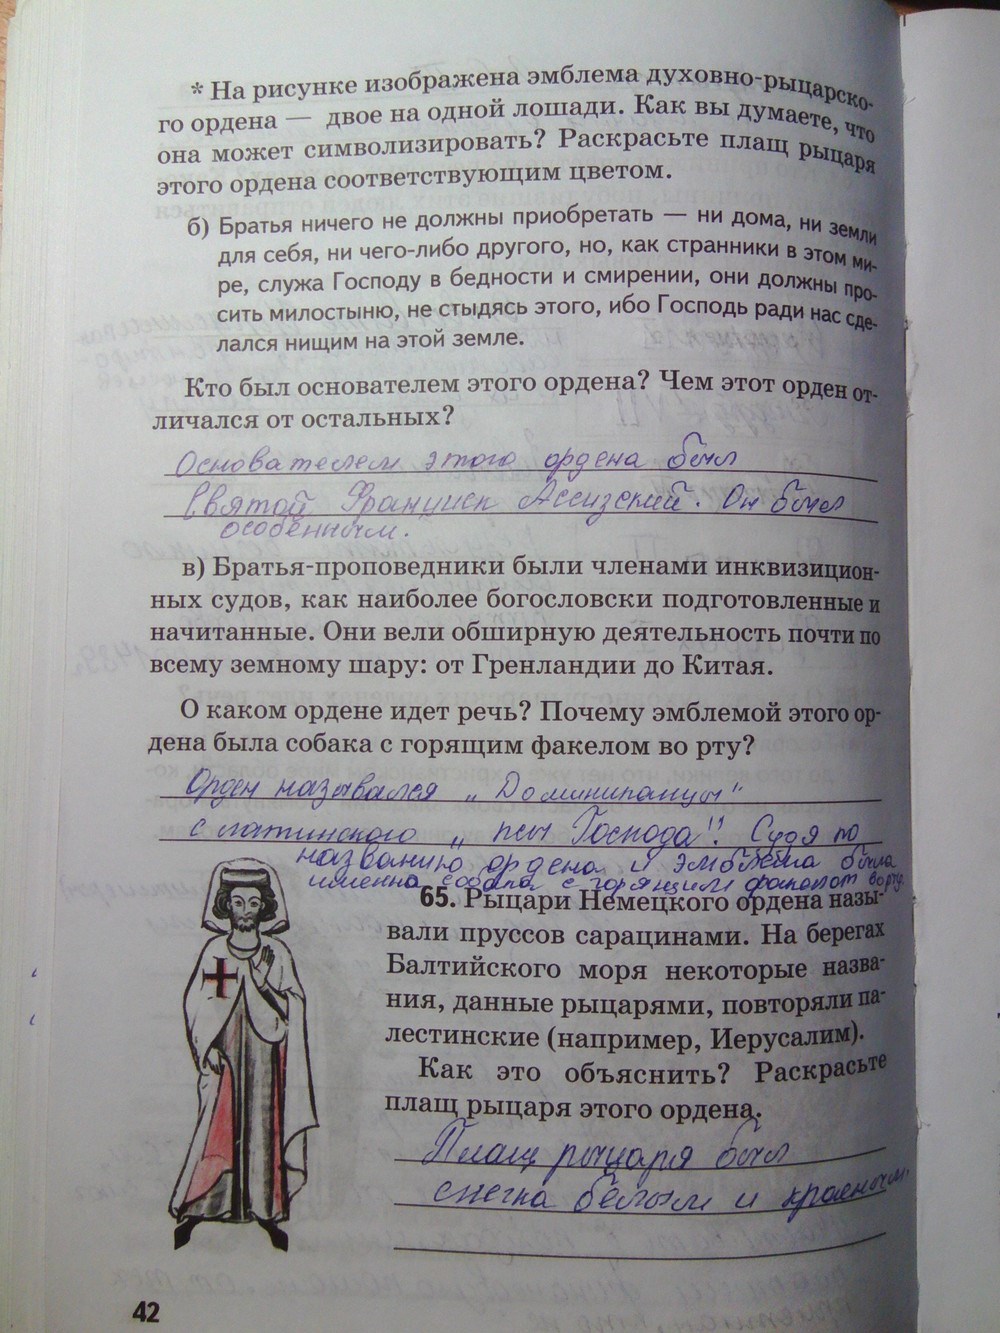 * На рисунке изображена эмблема духовно-рыцарско-
го ордена — двое на одной лошади. Как вы думаете, что
она может символизировать? Раскрасьте плащ рыцаря
этого ордена соответствующим цветом.
б) Братья ничего не должны приобретать — ни дома, ни земли
для себя, ни чего-либо другого, но, как странники в этом ми-
ре, служа Господу в бедности и смирении, они должны про-
сить милостыню, не стыдясь этого, ибо Господь ради нас сде-
лался нищим на этой земле.
Кто был основателем этого ордена? Чем этот орден от-
личался от остальных?
Основателем этого ордена был
Святой Франциск Ассизский. Он был
особенным.
в) Братья-проповедники были членами инквизицион-
ных судов, как наиболее богословски подготовленные и
начитанные. Они вели обширную деятельность почти по
всему земному шару: от Гренландии до Китая.
О каком ордене идет речь? Почему эмблемой этого ор-
дена была собака с горящим факелом во рту?
Орден назывался „Доминиканцы"
с латинского „псы Господа". Судя по
названию ордена и эмблема была
именна собака с горящим факелом во рту.
65. Рыцари Немецкого ордена назы-
вали пруссов сарацинами. На берегах
Балтийского моря некоторые назва-
ния, данные рыцарями, повторяли па-
лестинские (например, Иерусалим).
Как это объяснить? Раскрасьте
плащ рыцаря этого ордена.
Плащ рыцаря был
слегка белым и красным.
42